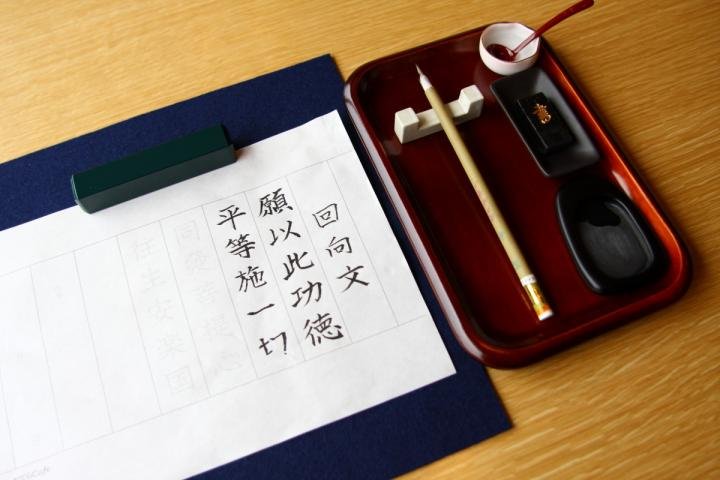 回向文
願以此功徳
平等施一切
同發菩提心
往生安楽国